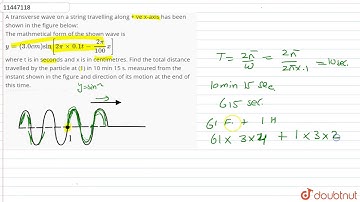 11447118
A transverse wave on a string travelling along + ve x-axis has been
shown in the figure below:
The mathmetical form of the shown wave is
y = (3.0cm)sin[2π × 0.1t − 2π/100 x]
where t is in seconds and x is in centimetres. Find the total distance
travelled by the particle at (1) in 10 min 15 s, measured from the
instant shown in the figure and direction of its motion at the end of
this time.
y=sin
1
T = 2π/ω = 2π/2π×.1 = 10sec
10min 15 sec
615 sec.
61 F + 1 H
61 × 3×4 + 1×3×2
doubtnut